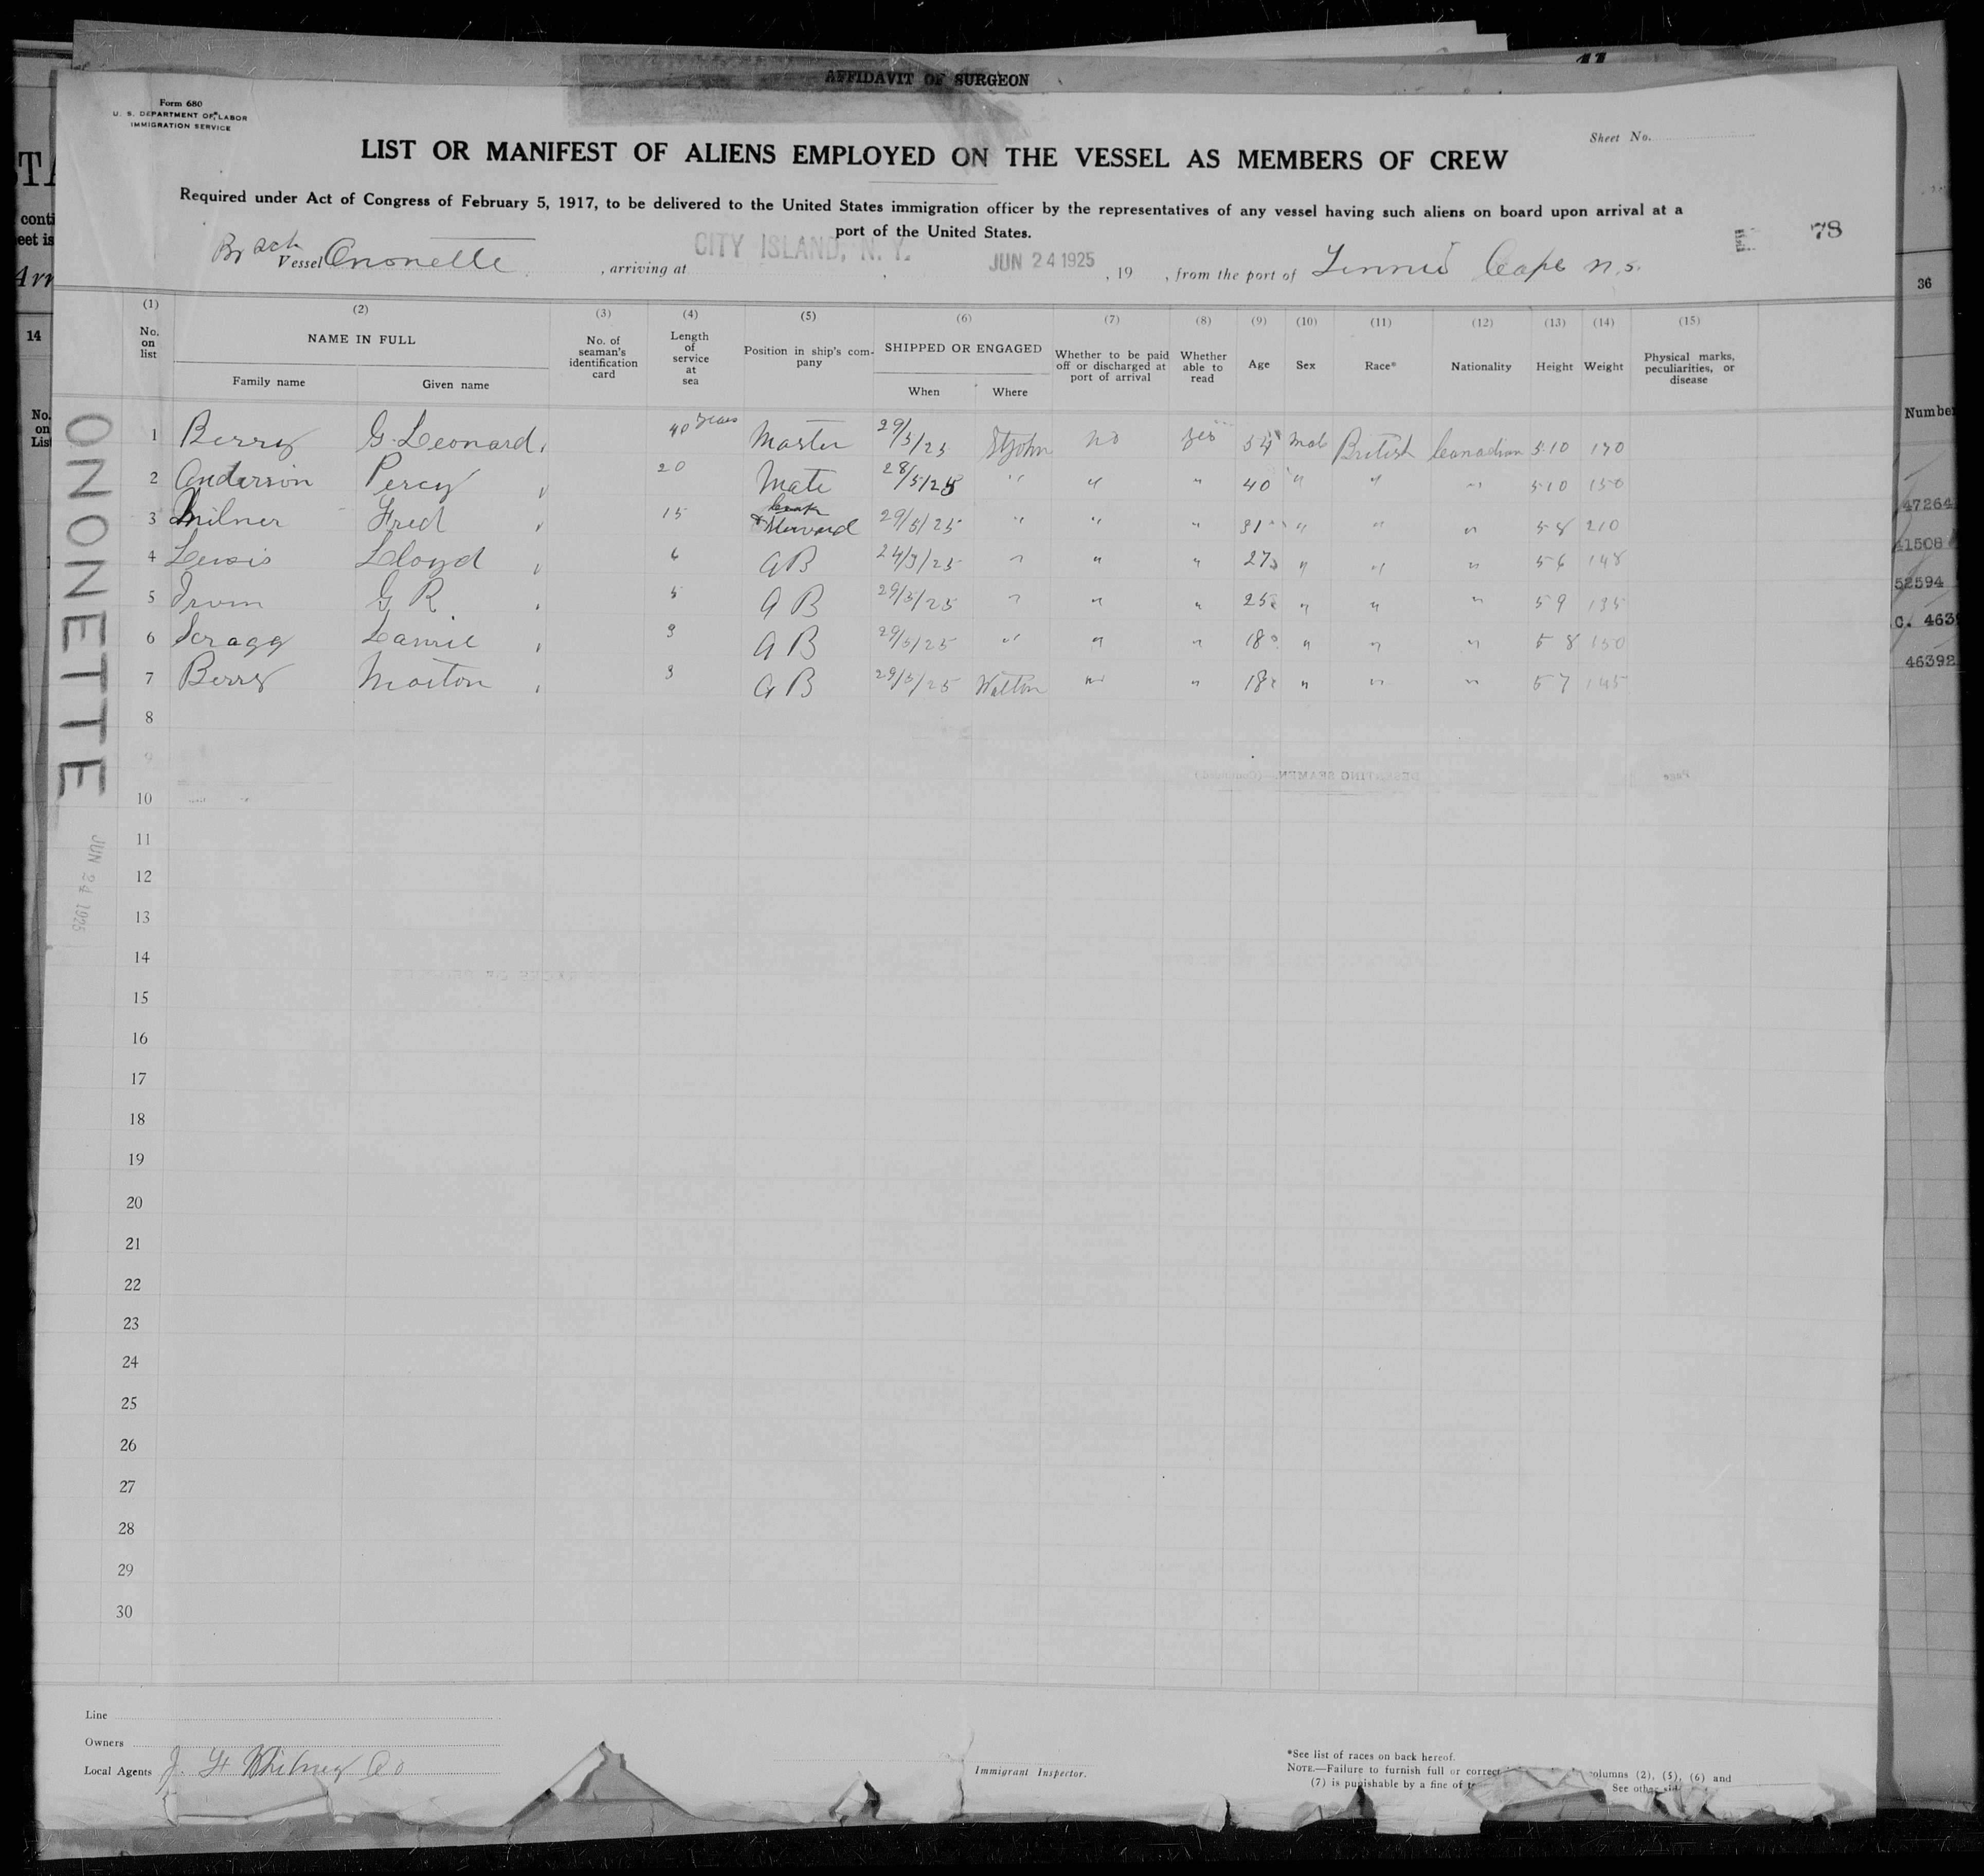 AFFIDAVIT OF SURGEON
Form 680
U. S. DEPARTMENT OF LABOR
IMMIGRATION SERVICE
Sheet No.
LIST OR MANIFEST OF ALIENS EMPLOYED ON THE VESSEL AS MEMBERS OF CREW
Required under Act of Congress of February 5, 1917, to be delivered to the United States immigration officer by the representatives of any vessel having such aliens on board upon arrival at a
port of the United States.
78
Br Sch Vessel Ononette, arriving at CITY ISLAND, N. Y. JUN 24 1925, 19 , from the port of Cape N.S.
(1) (2) (3) (4) (5) (6) (7) (8) (9) (10) (11) (12) (13) (14) (15)
No. on list NAME IN FULL No. of seaman's identification card Length of service at sea Position in ship's company SHIPPED OR ENGAGED Whether to be paid off or discharged at port of arrival Whether able to read Age Sex Race* Nationality Height Weight Physical marks, peculiarities, or disease
Family name Given name When Where
1 Berry G. Leonard 40 years Master 29/5/25 St John no yes 54 Male British Canadian 5.10 170
2 Anderson Percy 20 Mate 28/5/25 " " " 40 " " " 5 10 150
3 Milner Fred 15 Cook & Steward 29/5/25 " " " 31 " " " 5 8 210
4 Lewis Lloyd 6 A B 24/3/25 " " " 27 " " " 5 6 148
5 Irvin G R 5 A B 29/5/25 " " " 25 " " " 5 9 135
6 Scragg Laurie 3 A B 29/5/25 " " " 18 " " " 5 8 150
7 Berry Morton 3 A B 29/5/25 Walton " " 18 " " " 5 7 145
8
9
10
11
12
13
14
15
16
17
18
19
20
21
22
23
24
25
26
27
28
29
30
ONONETTE
JUN 24 1925
Line
Owners
Local Agents J. F Whitney Co
Immigrant Inspector.
*See list of races on back hereof.
NOTE.—Failure to furnish full or correct columns (2), (5), (6) and
(7) is punishable by a fine of See other
14
No. on List
36
Number
47264
41508
52594
C. 4639
46392